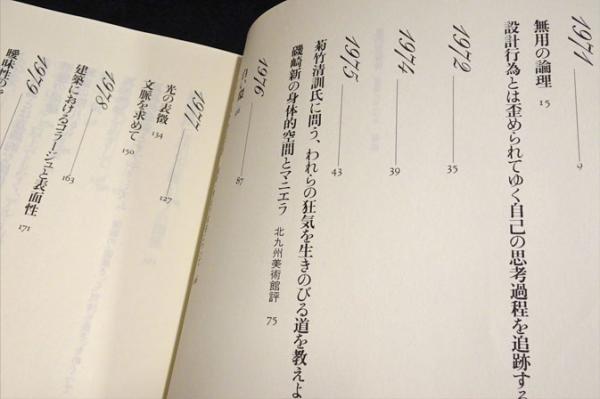 1971 9
無用の論理 15
設計行為とは歪められてゆく自己の思考過程を追跡する
1972 35
1974 39
1975 43
菊竹清訓氏に問う、われらの狂気を生きのびる道を教えよ
磯崎新の身体的空間とマニエラ 北九州美術館評 75
1976 87
1977 127
光の表徴 134
文脈を求めて 150
1978 163
建築におけるコラージュと表面性 171
1979
曖昧性の